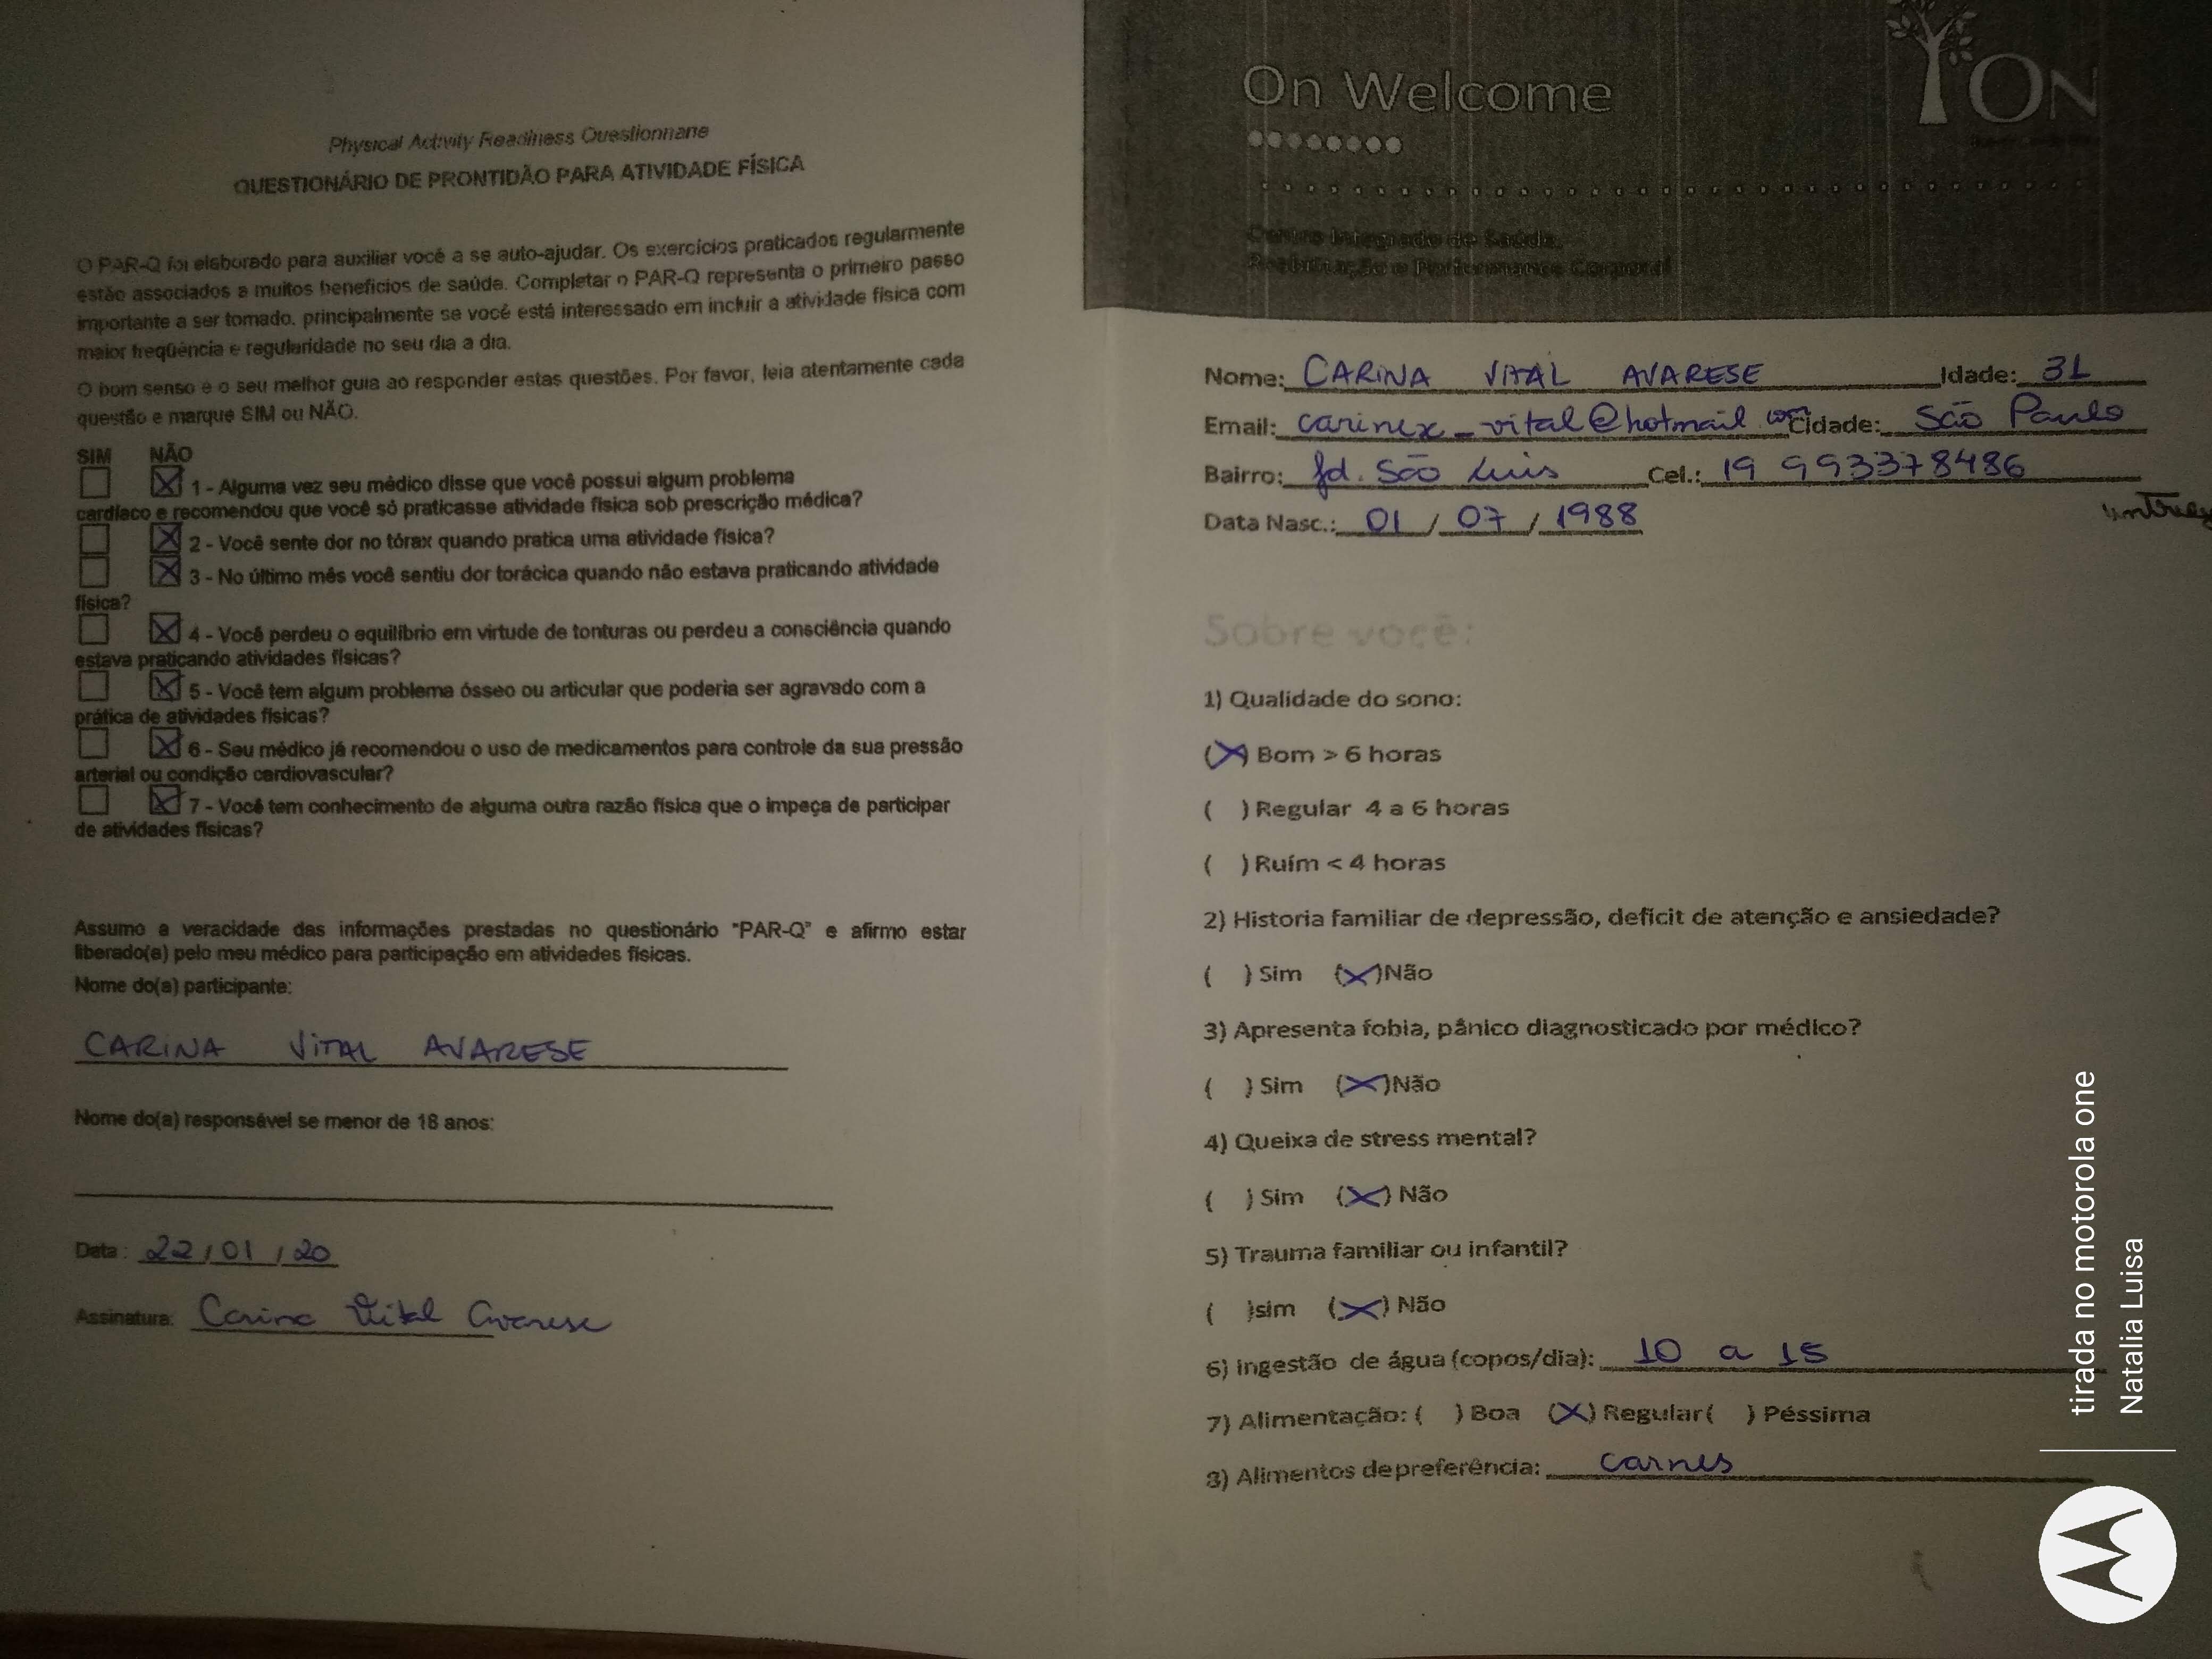 Physical Activity Readiness Questionnane
QUESTIONÁRIO DE PRONTIDÃO PARA ATIVIDADE FÍSICA
O PAR-Q foi elaborado para auxiliar você a se auto-ajudar. Os exercícios praticados regularmente
estão associados a muitos benefícios de saúde. Completar o PAR-Q representa o primeiro passo
importante a ser tomado. principalmente se você está interessado em incluir a atividade física com
maior freqüência e regularidade no seu dia a dia.
O bom senso é o seu melhor guia ao responder estas questões. Por favor, leia atentamente cada
questão e marque SIM ou NÃO.
SIM NÃO
1 - Alguma vez seu médico disse que você possui algum problema
cardíaco e recomendou que você só praticasse atividade física sob prescrição médica?
2 - Você sente dor no tórax quando pratica uma atividade física?
3 - No último mês você sentiu dor torácica quando não estava praticando atividade
física?
4 - Você perdeu o equilíbrio em virtude de tonturas ou perdeu a consciência quando
estava praticando atividades físicas?
5 - Você tem algum problema ósseo ou articular que poderia ser agravado com a
prática de atividades físicas?
6 - Seu médico já recomendou o uso de medicamentos para controle da sua pressão
arterial ou condição cardiovascular?
7 - Você tem conhecimento de alguma outra razão física que o impeça de participar
de atividades físicas?
Assumo a veracidade das informações prestadas no questionário "PAR-Q" e afirmo estar
liberado(a) pelo meu médico para participação em atividades físicas.
Nome do(a) participante:
CARINA VITAL AVARESE
Nome do(a) responsável se menor de 18 anos:
Data: 22/01/20
Assinatura: Carina Vital Avarese
On Welcome
ON
Centro Integrado de Saúde,
Reabilitação e Performance Corporal
Nome: CARINA VITAL AVARESE Idade: 31
Email: carinex_vital@hotmail.com Cidade: São Paulo
Bairro: Jd. São Luis Cel.: 19 993378486
Data Nasc.: 01/07/1988
Sobre você:
1) Qualidade do sono:
(X) Bom > 6 horas
( ) Regular 4 a 6 horas
( ) Ruím < 4 horas
2) Historia familiar de depressão, deficit de atenção e ansiedade?
( ) Sim (X) Não
3) Apresenta fobia, pânico diagnosticado por médico?
( ) Sim (X) Não
4) Queixa de stress mental?
( ) Sim (X) Não
5) Trauma familiar ou infantil?
( )sim (X) Não
6) Ingestão de água (copos/dia): 10 a 15
7) Alimentação: ( ) Boa (X) Regular ( ) Péssima
8) Alimentos de preferência: carnes
tirada no motorola one
Natalia Luisa